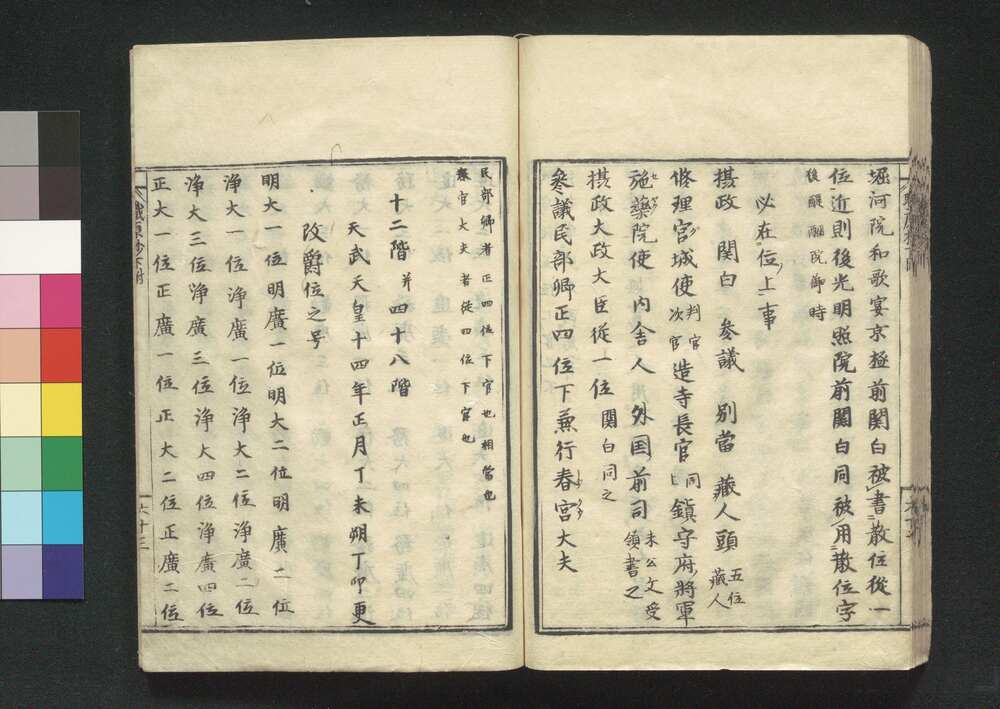 堀河院和歌宴京極前関白被書散位從一
位近則後光明照院前関白同被用散位字
後醍醐院御時
必在位上事
摂政 関白 参議 別當 蔵人頭 五位蔵人
修理宮城使 判官次官 造寺長官 同 鎮守府将軍
施薬院使 内舎人 外国前司 未公文受領書之
摂政大政大臣従一位 関白同之
参議民部卿正四位下兼行春宮大夫
民部卿者正四位下官也相當也
春宮大夫者從四位下官也
十二階 并 四十八階
天武天皇十四年正月丁未朔丁卯更
改爵位之号
明大一位明廣一位明大二位明廣二位
浄大一位浄廣一位浄大二位浄廣二位
浄大三位浄廣三位浄大四位浄廣四位
正大一位正廣一位正大二位正廣二位
職原抄下附
六十三